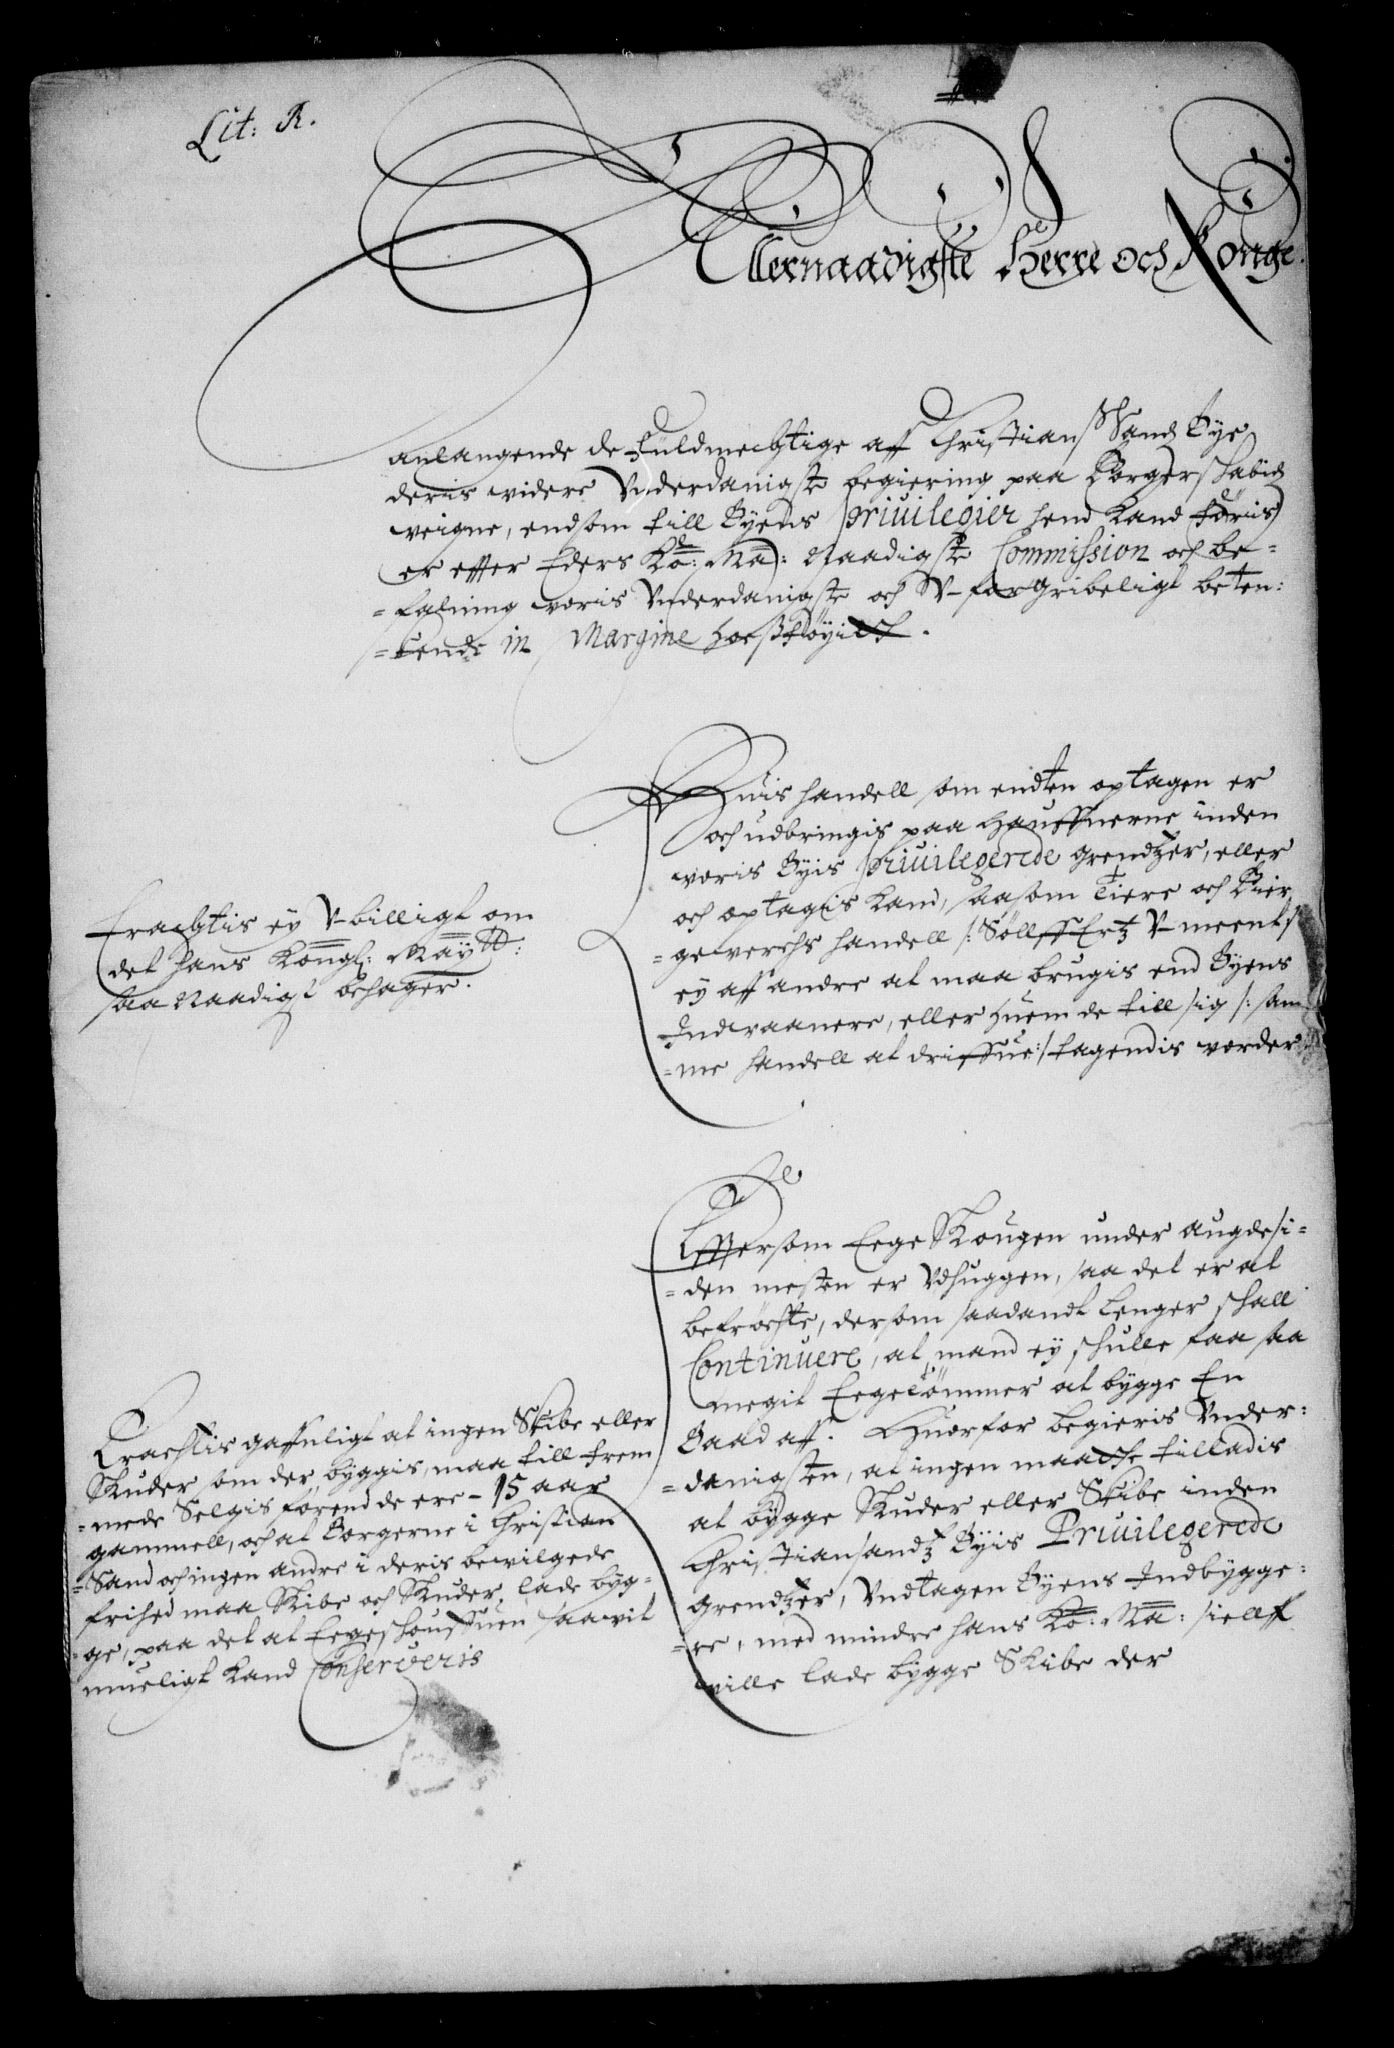 Lit: R.
Allernaadigste Herre och Konge.
anlangende de fuldmechtige aff Christians Sands Bye
deris widere Vnderdanigste begiering paa Borgerskabids
weigne, endsom till Byens priuilegier hend kand føriis
er effter Eders Ko: Ma: Naadigste Commission och be-
-falning woris Vnderdanigste och V-forgribeligt beten:
-kende in Margine hoesføyedt.
Huis handell som endten optagen er
och udbringis paa Hauffnerne inden
woris Byis priuilegerede grendtzer, eller
och optagis kand, saasom Tiere och Bier
-gewerchs handell /: Sølff Ertz V-meent /
ey aff andre at maa brugis end Byens
Indvaanere, eller huem de till sig /: sam
-me handell at driffue :/ tagendis worder
Erachtis ey V-billigt om
det hans Kongl: Maytt:
saa Naadigst behager.
Efftersom Eege Skougen under augdesi-
-den mesten er Vdhuggen, saa det er at
befrøchte, dersom saadandt lenger skall
Continuere, at mand ey skulle faa saa
megit Eegetømmer at bygge En
Baad aff. Huorfor begieris Vnder:
-danigsten, at ingen maatte tilladis
at bygge Skuder eller Skibe inden
Christiansandtz Byis Priuilegerede
grendtzer, Vndtagen Byens Indbygge:
-re, med mindre hans Ko: Ma: sielff
wille lade bygge Skibe der
Erachtis gaffnligt at ingen Skibe eller
Skuder som der byggis, maa till frem
-mede Selgis førend de ere - 15 aar
gammell, och at Borgerne i Christian
-Sand och ingen andre i deris bewilgede
frihed maa Skibe och Skuder, lade byg-
-ge, paa det at Eegeskouffuen saawit
mueligt kand Conserveris